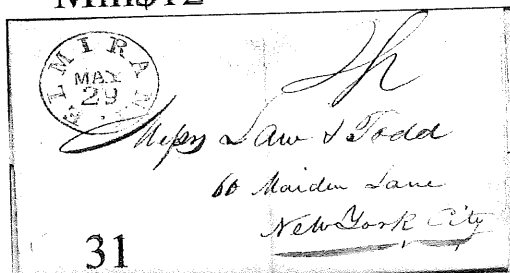 Min$12
ELMIRA N
MAY
29
Messrs Law & Todd
60 Maiden Lane
New York City
31